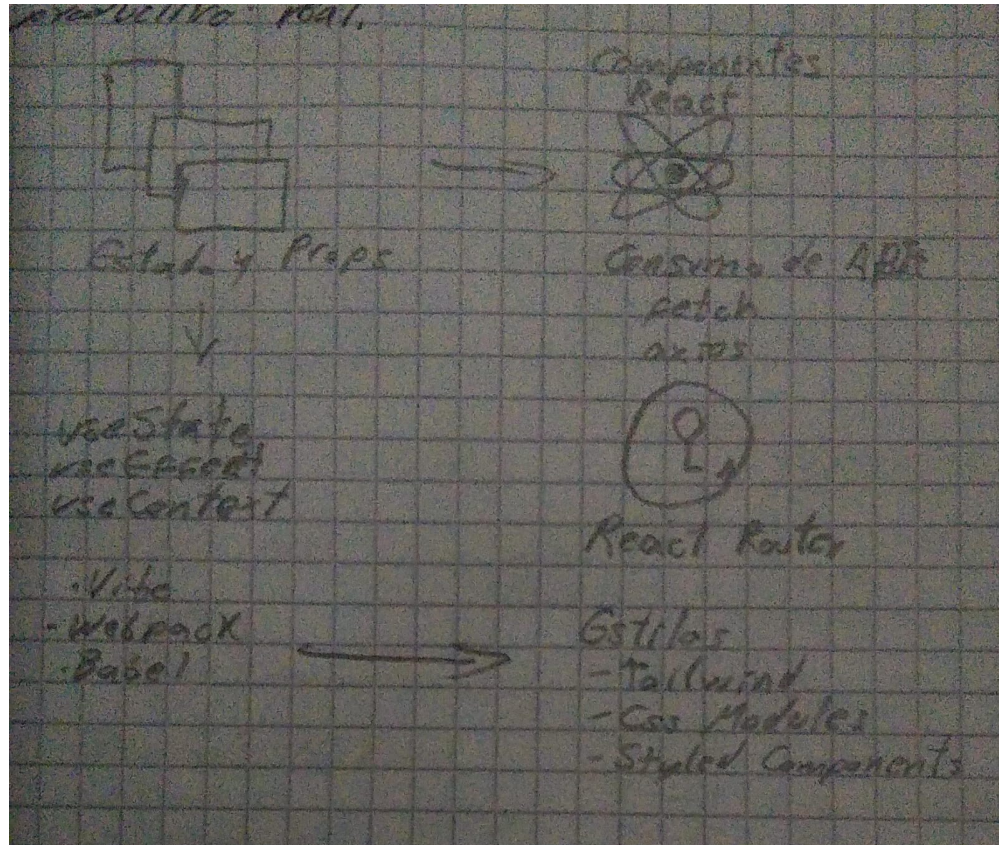 productivo real.
Componentes
React
Estado y Props
Consumo de APIs
fetch
axios
useState
useEffect
useContext
React Router
·Vite
-Webpack
·Babel
Estilos
-Tailwind
-Css Modules
-Styled Components